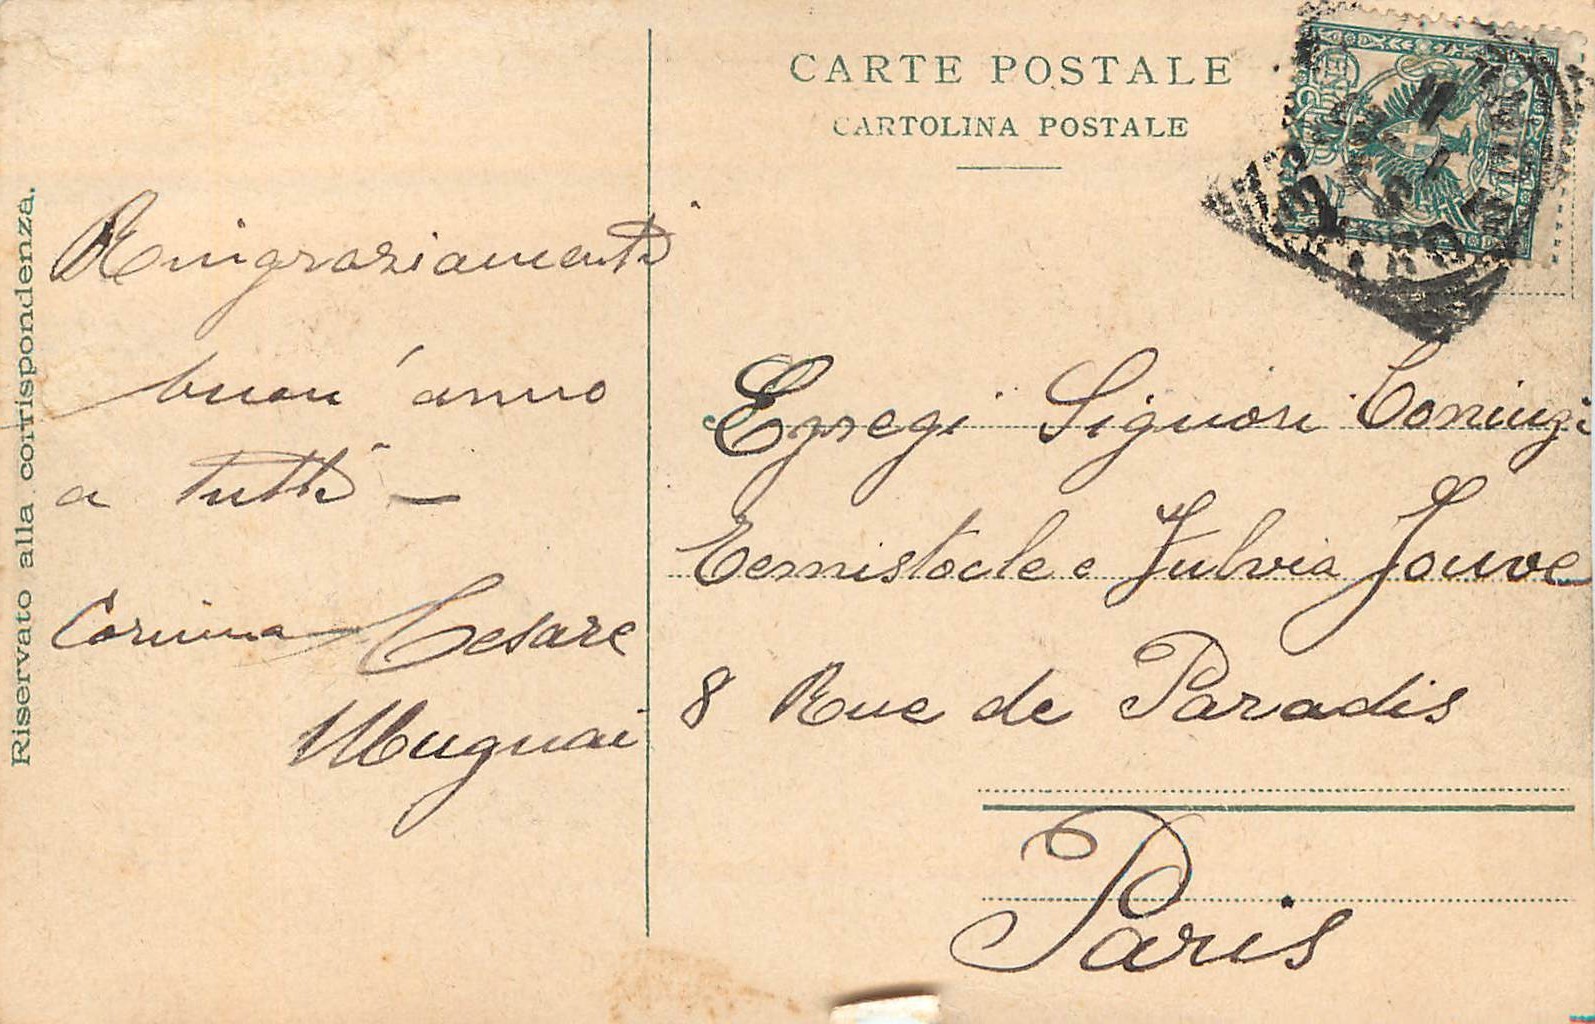 CARTE POSTALE
CARTOLINA POSTALE
Riservato alla corrispondenza.
Ringraziamenti
buon' anno
a tutti —
Corinna Cesare
Mugnai
Egregi Signori Coniugi
Temistocle e Fulvia Jouve
8 Rue de Paradis
Paris